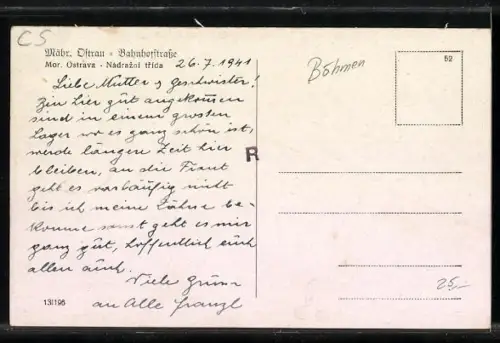 CS
Mähr. Ostrau - Bahnhofstraße
Mor. Ostrava - Nádražní třída
26.7.1941
Böhmen
52
Liebe Mutter u Geschwister!
Bin hier gut angekommen
sind in einem grosten
Lager wo es ganz schön ist,
werde längere Zeit hier
bleiben, an die Front
geht es vorläufig nicht
bis ich meine Zähne be-
komme sonst geht es mir
ganz gut, hoffentlich euch
allen auch.
Viele Grüsse
an Alle Franzl
R
13/196
25,-